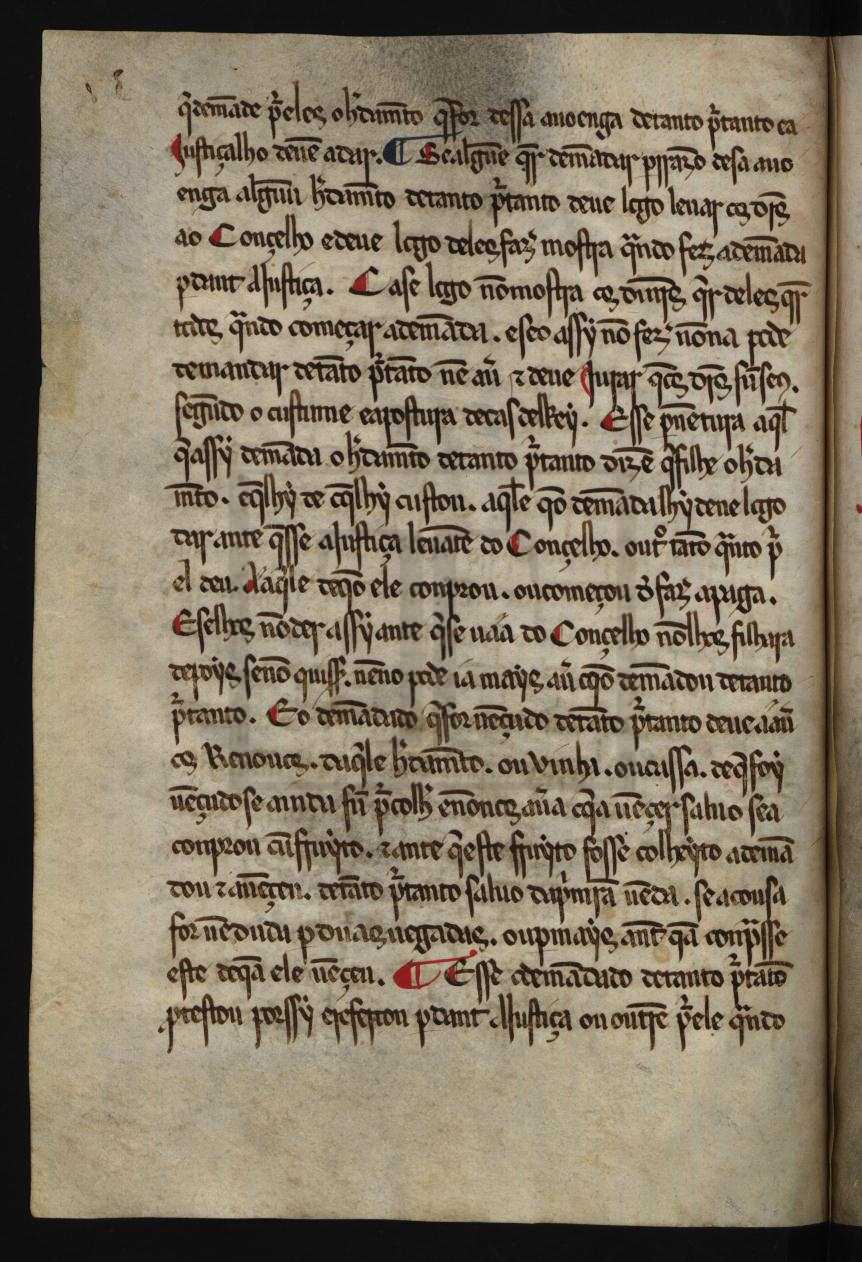 q̄ demãde p̃ eles o h̃dam̃to q̄ for dessa auoenga de tanto p̃ tanto ea
Justiça lho deuẽ a dar. ¶ Se algũe q̃r demãdar p̃ razõ desa auo
enga algũu h̃dam̃to de tanto p̃ tanto deue logo leuar os dr̃s
ao Conçelho e deue logo deles faz̃ mostra q̃ndo fez a demãda
p dant A Justiça. Ca se logo nõ mostra os din̄rs q̃r deles q̃r
todos q̃ndo começar a demãda. e se o assy nõ fez nõ na pode
demandar de tãto p̃ tãto nẽ aũ ⁊ deue Jurar q̄ os dr̃s sũ seus.
segũdo o custume e apostura de cas del Rey. Esse pũetura aq̄l
q̄ assy demãda o h̃dam̃to de tanto p̃ tanto dizẽ q̄ filhe o h̃da
m̃to. e q̄ lhy de o q̄ lhy custou. aq̄le q̄ o demãda lhy deue logo
dar ante q̄ sse a Justiça leuãte do Conçelho. outº tãto q̃nto p̃
el deu. A aq̄le de q̄ o ele conprou. ou começou d̃ faz̃ a paga.
E se lhos nõ der assy ante q̄ se uaa do Conçelho nõ lhos filhara
depoys se nõ quiss̃. nẽ no pode ia mays auer o q̄ o demãdou de tanto
p̃ tanto. E o demãdado q̄ for uẽçudo de tãto p̃ tanto deue a aũ
os Renouos. daq̄le h̃dam̃to. ou vinha. ou cassa. de q̄ foy
uẽçudo se ainda sũ p̃ colh̃ enõ nos auera o q̄ a uẽçer saluo se a
conprou cũ ffruyto. ⁊ ante q̄ este ffruyto fosse colheyto a demã
dou ⁊ a uẽçeu. de tãto p̃ tanto saluo da p̃meira uẽda. se a cousa
for uẽduda p duas uegadas. ou p mays ant̃ q̄ a conp̃sse
este de q̄ a ele uẽçeu. ¶ Esse o demãdado de tanto p̃ tãto
p̃testou por ssy e rẽfertou p dant A Justiça ou outrẽ p̃ ele q̃ndo